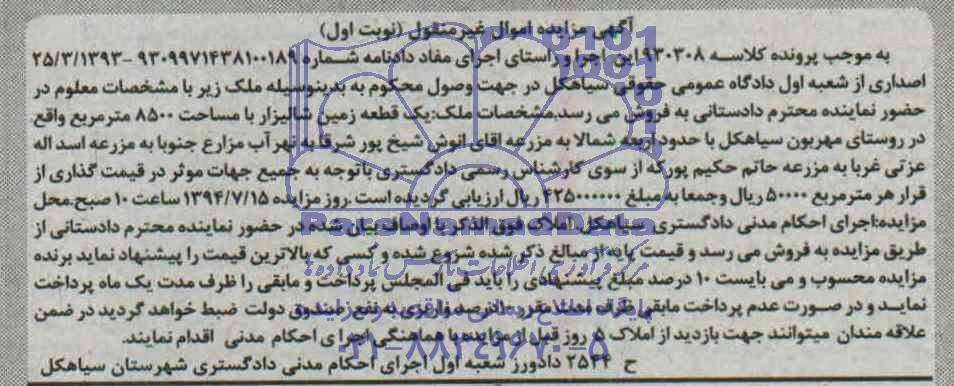 آگهی مزایده اموال غیرمنقول (نوبت اول)
به موجب پرونده کلاسه ۹۳۰۳۰۸ این اجرا و راستای اجرای مفاد دادنامه شماره ۹۳۰۹۹۷۱۴۳۸۱۰۰۱۸۹ -۲۵/۳/۱۳۹۳
اصداری از شعبه اول دادگاه عمومی حقوقی سیاهکل در جهت وصول محکوم به بدینوسیله ملک زیر با مشخصات معلوم در
حضور نماینده محترم دادستانی به فروش می رسد.مشخصات ملک:یک قطعه زمین شالیزار با مساحت ۸۵۰۰ مترمربع واقع
در روستای مهربون سیاهکل با حدود اربعه شمالا به مزرعه اقای انوش شیخ پور شرقا به نهر آب مزارع جنوبا به مزرعه اسد اله
عزتی غربا به مزرعه حاتم حکیم پورکه از سوی کارشناس رسمی دادگستری باتوجه به جمیع جهات موثر در قیمت گذاری از
قرار هر مترمربع ۵۰۰۰۰ ریال وجمعا به مبلغ ۴۲۵۰۰۰۰۰۰ ریال ارزیابی گردیده است .روز مزایده ۱۳۹۴/۷/۱۵ ساعت ۱۰ صبح.محل
مزایده:اجرای احکام مدنی دادگستری سیاهکل. املاک فوق الذکر با اوصاف بیان شده در حضور نماینده محترم دادستانی از
طریق مزایده به فروش می رسد و قیمت پایه از مبالغ ذکر شده شروع شده و کسی که بالاترین قیمت را پیشنهاد نماید برنده
مزایده محسوب و می بایست ۱۰ درصد مبلغ پیشنهادی را باید فی المجلس پرداخت و مابقی را ظرف مدت یک ماه پرداخت
نمایـد و در صـورت عدم پرداخت مابقی ظرف مدت مقرر ۱۰درصد واریزی به نفع صندوق دولت ضبط خواهد گردید در ضمن
علاقه مندان میتوانند جهت بازدید از املاک ۵ روز قبل از مزایده با هماهنگی اجرای احکام مدنی اقدام نمایند.
ح ۲۵۴۴ دادورز شعبه اول اجرای احکام مدنی دادگستری شهرستان سیاهکل